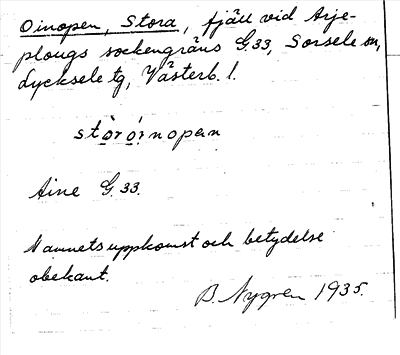 Oinopen, Stora, fjäll vid Arje-
plougs sockengräns G.33, Sorsele sn,
Lycksele tg, Västerb. l.
Aine G 33.
Namnets uppkomst och betydelse
obekant.
B. Nygren 1935.